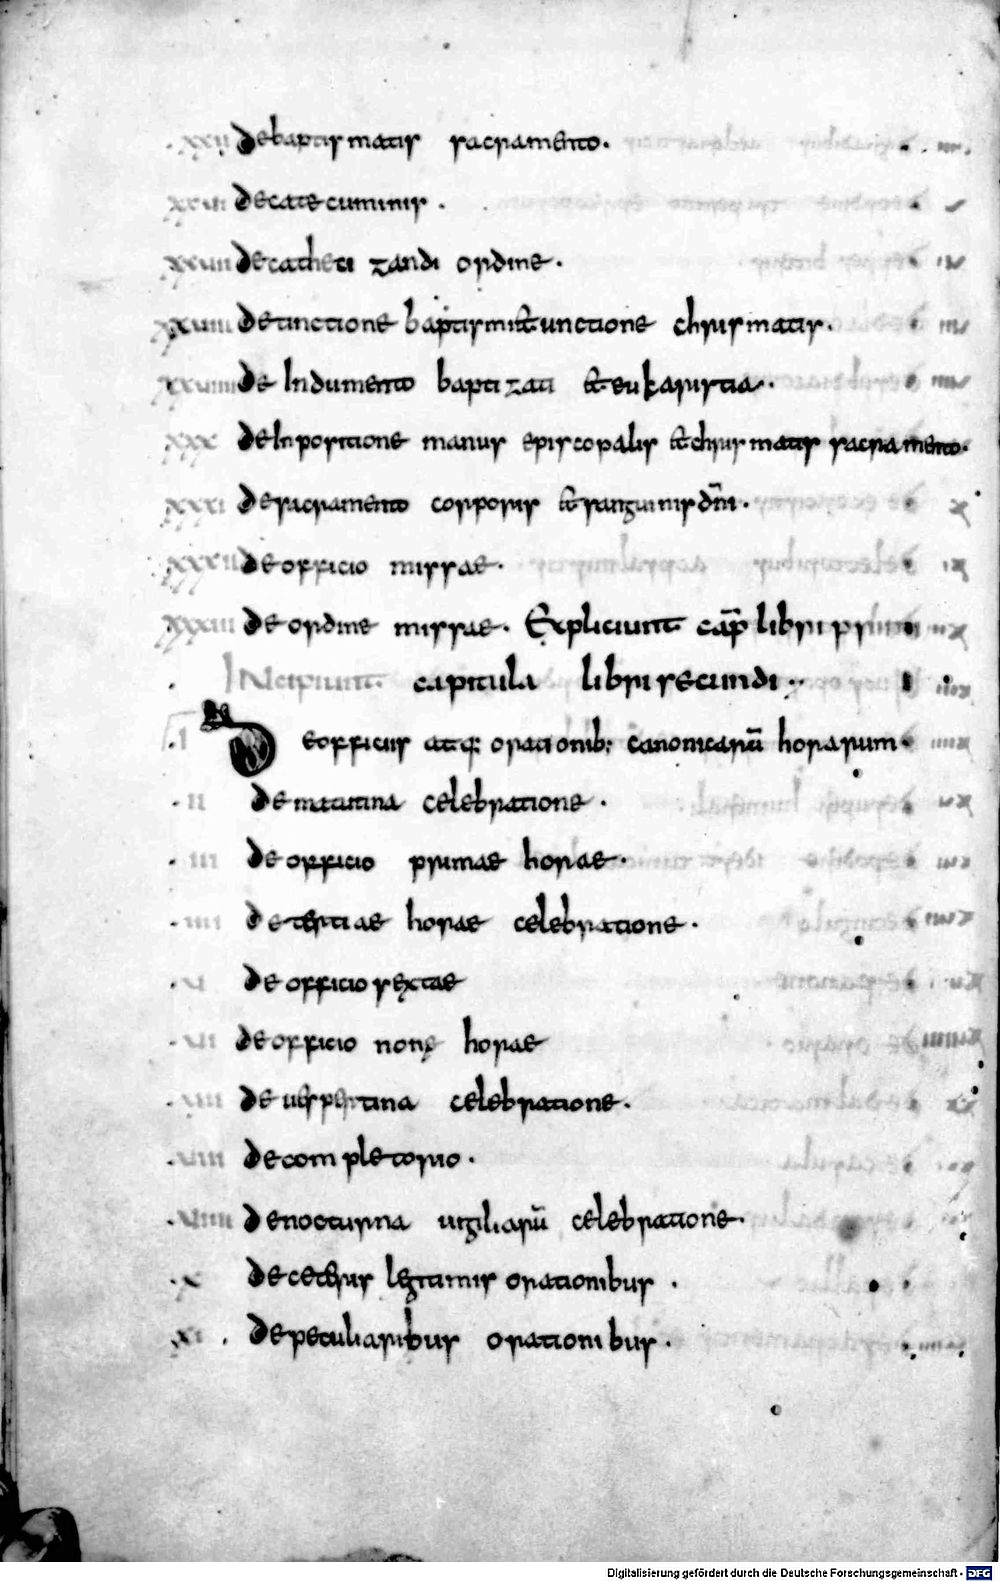 .xxv debaptismatis sacramento.
xxvi decatecuminis.
xxvii decatheci zandi ordine.
xxviii detinctione baptismi & unctione chrismatis.
xxviiii de Indumento baptizati & eukaristia.
xxx deInpositione manus episcopalis & chrismatis sacramento.
xxxi desacramento corporis & sanguinis dn̄i.
xxxii deofficio missae.
xxxiii de ordine missae. Expliciunt cap̄ libri primi
INcipiunt capitula libri secundi
.I Deofficiis atq; orationib; canonicarū horarum.
.II de matutina celebratione.
.III de officio primae horae.
.IIII de tertiae horae celebratione.
.VI de officio sextae
.VII deofficio nonę horae
.VIII de uespertina celebratione.
.VIII decompletorio.
.VIIII denocturna uigiliarū celebratione.
.X deceteris legitimis orationibus.
XI. depeculiaribus orationibus.
Digitalisierung gefördert durch die Deutsche Forschungsgemeinschaft - DFG